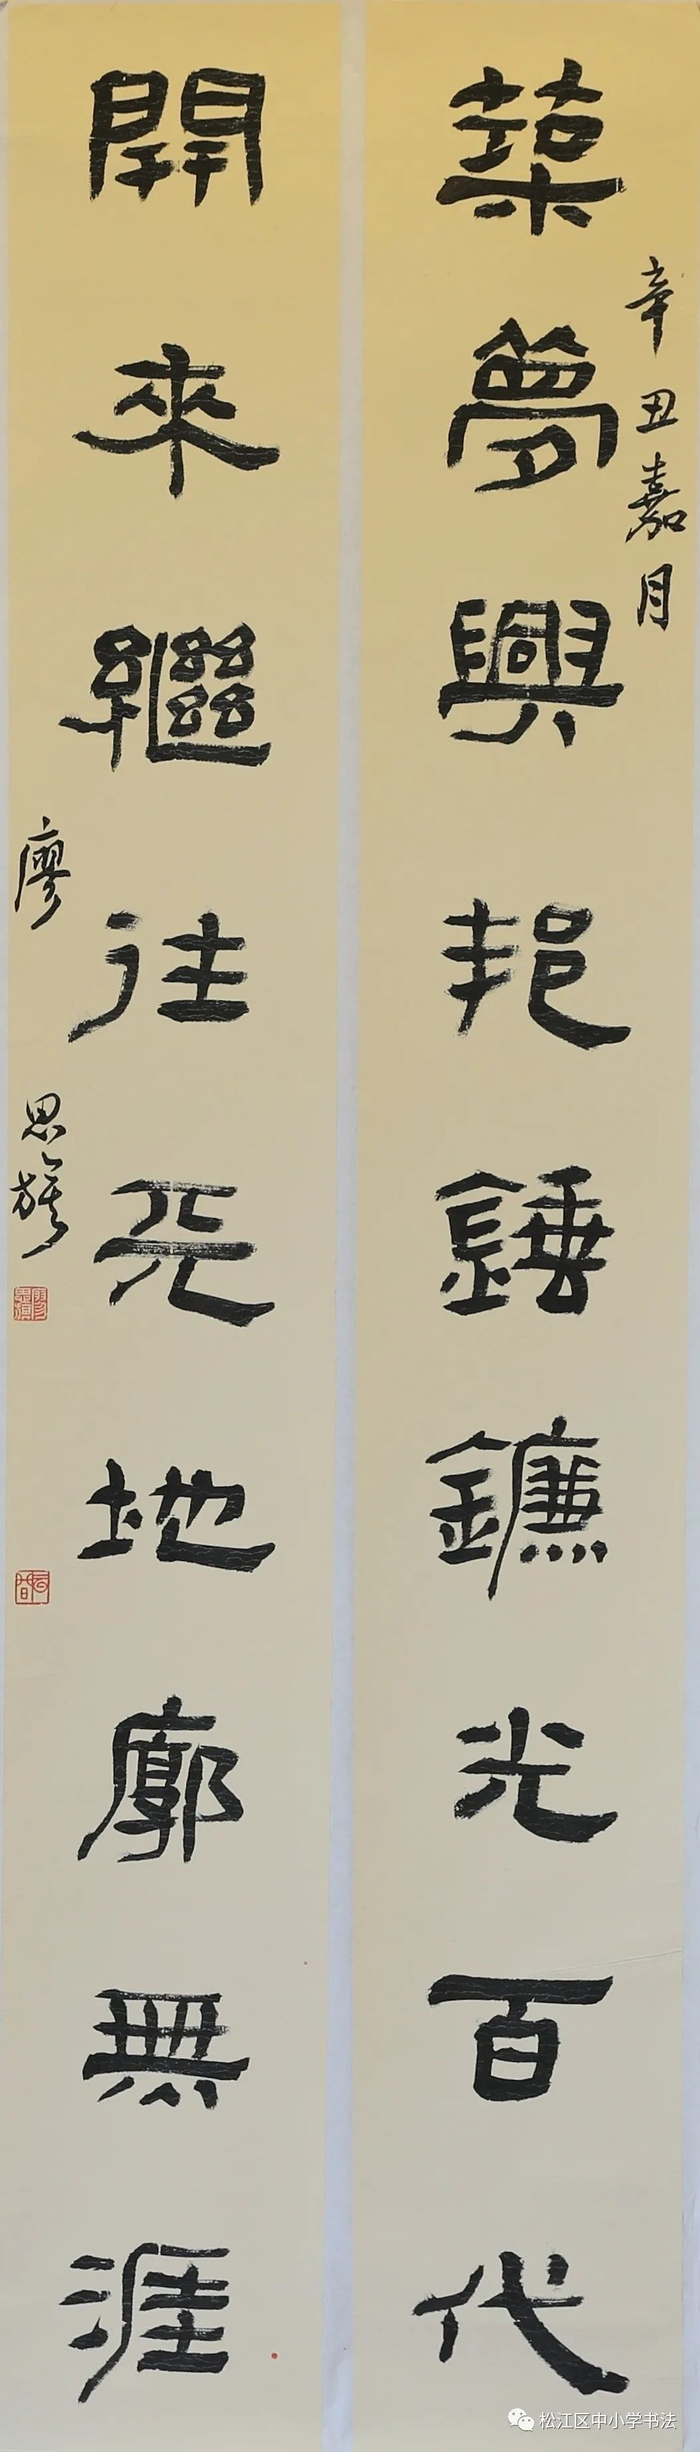 築夢興邦錘鐮光百代
辛丑嘉月
開來繼往天地廓無涯
廖思旗
松江区中小学书法